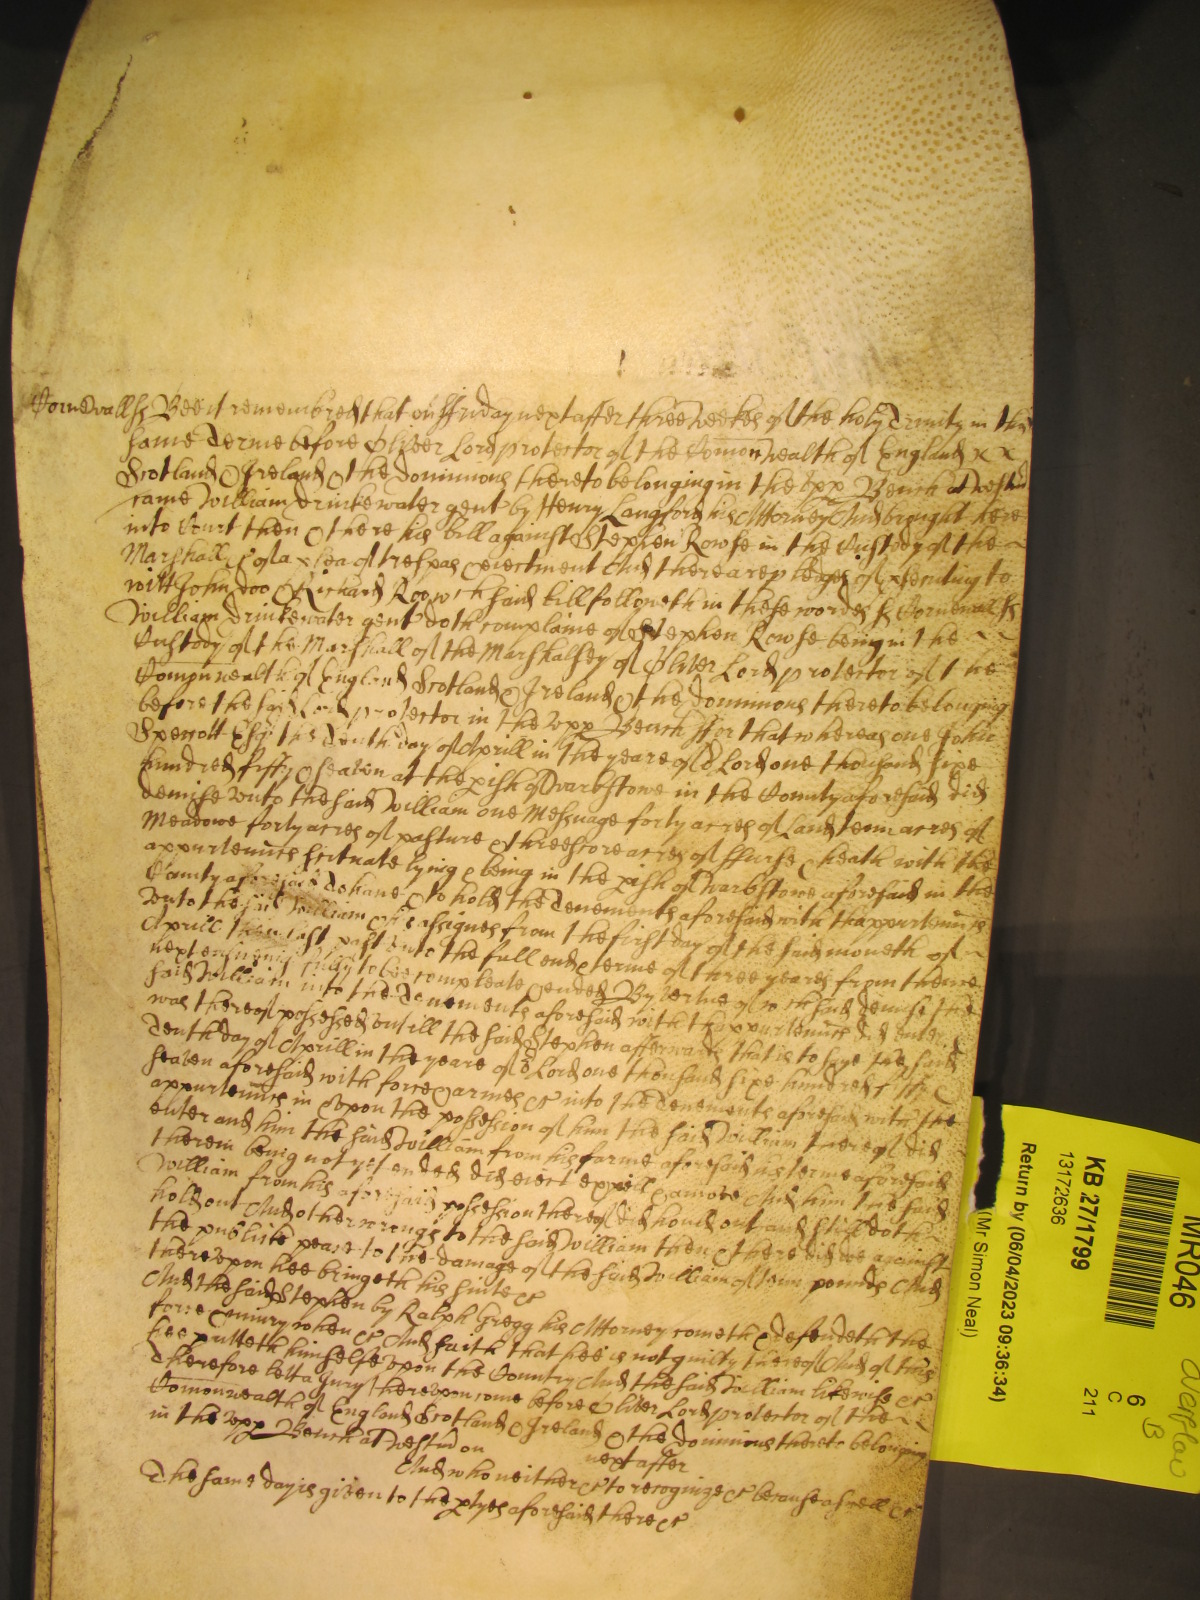 Cornewall ss Bee it remembred that on ffriday next after three weekes of the holy Trinity in this
same Terme before Oliver Lord protector of the Comonwealth of England x x
Scotland & Ireland & the dominions thereto belonging in the Vpp Bench at Westm
came William drinkewater gent by Henry Langford his Attorney And brought here
into Court then & there his bill against Stephen Rowse in the Custody of the
Marshall &c of a plea of trespas & eiectment And there are pledges of prosecuting to
witt John doo & Richard Roo wch said bill followeth in these wordes ss Cornewall ss
William drinkewater gent doth complaine of Stephen Rowse being in the
Custody of the Marshall of the Marshalsey of Oliver Lord protector of the
Comonwealth of England Scotland & Ireland & the dominions thereto belonging
before the said Lord protector in the Vpp Bench ffor that whereas one John
Specott Esqr the Tenth day of Aprill in the yeare of or Lord one thousand sixe
hundred fifty & seaven at the pish of Warbstowe in the County aforesaid did
demise vnto the said William one Messuage forty acres of Land tenn acres of
Meadowe forty acres of pasture & threescore acres of ffurse & heath with the
appurtennces scituate lying & being in the pish of Warbstowe aforesaid in the
County aforesaid To have & to hold the Tenements aforesaid with thappurtennces
vnto the said William & his assignes from the first day of the said moneth of
Aprill then last past vnto the full end & terme of three yeares from thence
next ensueing fully to bee compleate & ended By vertue of wch said demise the
said William into the Tenements aforesaid with thappurtennces did enter &
was thereof possessed vntill the said Stephen afterwards that is to saye the said
Tenth day of Aprill in the yeare of or Lord one thousand sixe hundred fifty &
seaven aforesaid with force & armes &c into the Tenements aforesaid with the
appurtennces in & vpon the possession of him the said William thereof did
enter and him the said William from his farme aforesaid his terme aforesaid
therein being not yet ended did eiect expell & amove And him the said
William from his aforesaid possession thereof did hould out and still doth
hold out And other wrongs to the said William then & there did doe against
the publike peace to the damage of the said William of tenn pounds And
therevpon hee bringeth his suite &c
And the said Stephen by Ralph Gregg his Attorney cometh & defendeth the
force & iniury when &c And saith that hee is not guilty thereof And of this
hee putteth himselfe vpon the Country And the said William likewise &c
Therefore lett a Jury therevpon come before Oliver Lord protector of the
Comonwealth of England Scotland & Ireland & the dominions thereto belonging
in the Vpp Bench at Westm on next after
And who neither &c to recognize &c because aswell &c
The same day is given to the ptyes aforesaid there &c
MR046
KB 27/1799
13172636
Return by (06/04/2023 09:36:34)
(Mr Simon Neal)
6
C
211
B